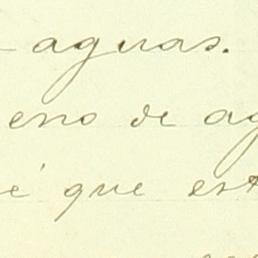 aguas.
eno de ag
é que est